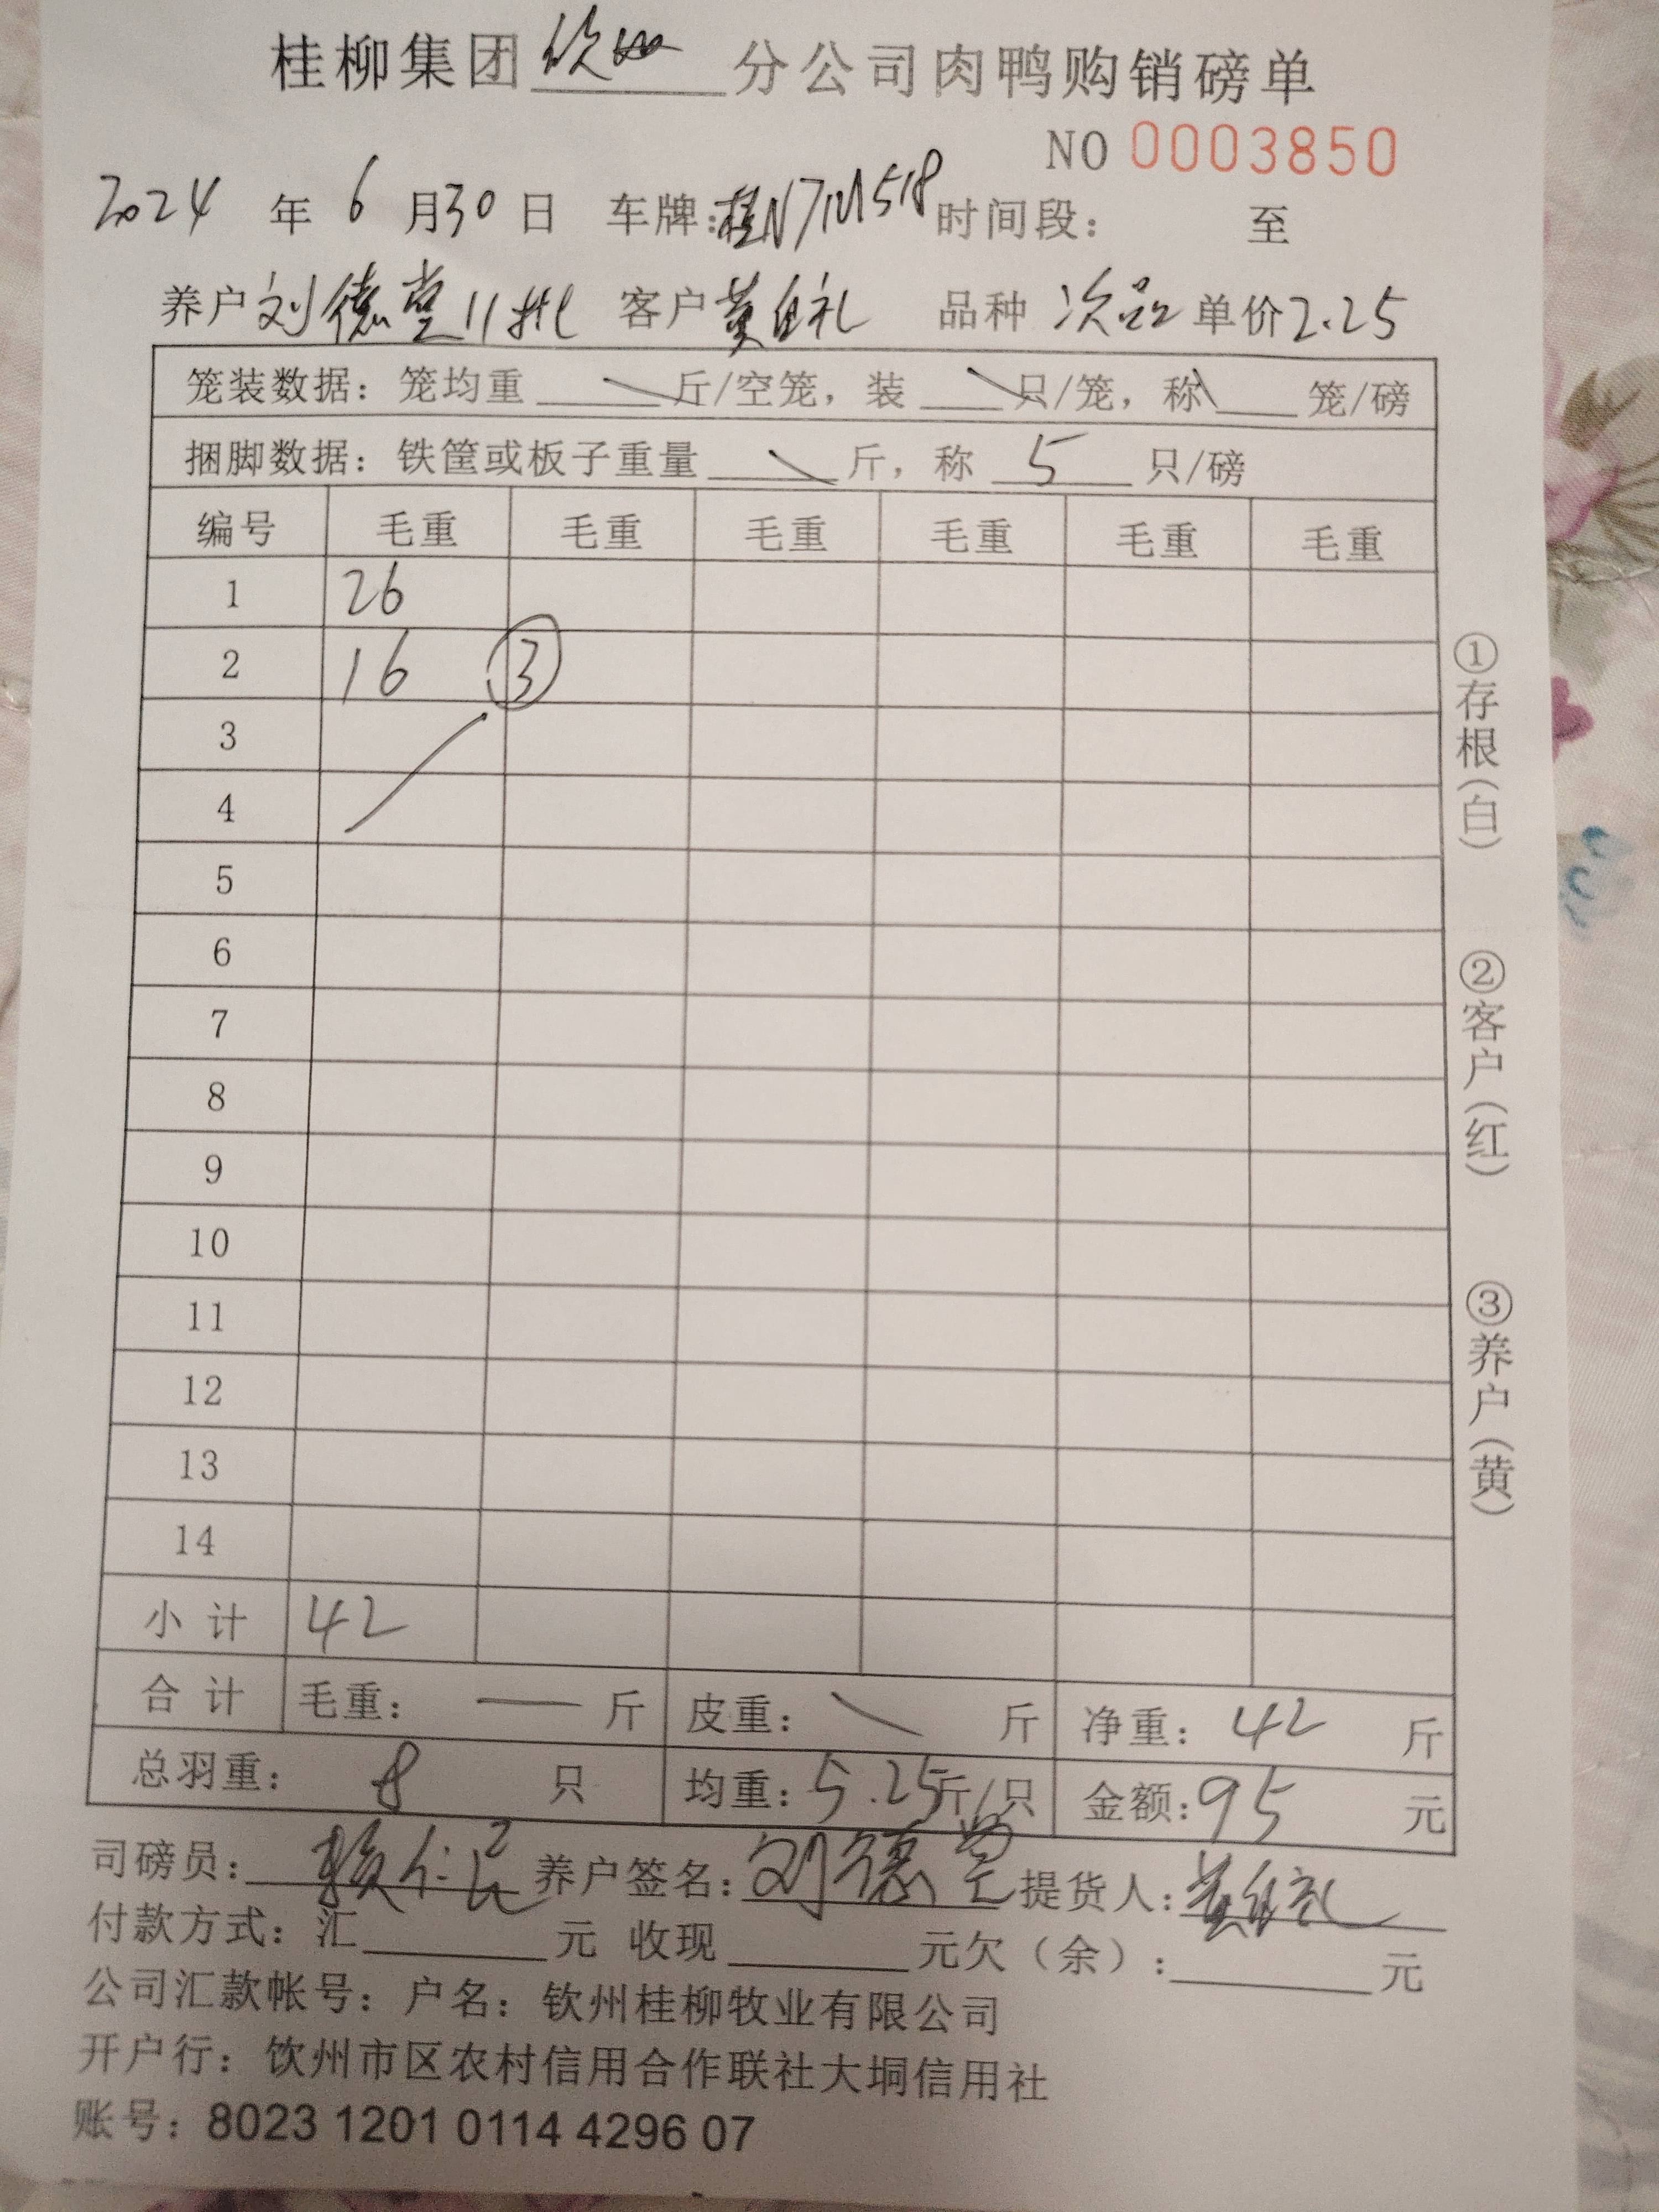 桂柳集团钦州分公司肉鸭购销磅单
NO 0003850
2024 年 6 月 30 日 车牌: 时间段: 至
养户 刘德堂 11批 客户 黄自礼 品种 次品 单价 2.25
笼装数据: 笼均重 斤/空笼, 装 只/笼, 称 笼/磅
捆脚数据: 铁筐或板子重量 斤, 称 5 只/磅
编号 毛重 毛重 毛重 毛重 毛重 毛重
1 26
2 16 ③
3
4
5
6
7
8
9
10
11
12
13
14
小计 42
合计 毛重: — 斤 皮重: 斤 净重: 42 斤
总羽重: 8 只 均重: 5.25 斤/只 金额: 95 元
司磅员: 养户签名: 刘德堂 提货人: 黄自礼
付款方式: 汇 元 收现 元欠(余): 元
公司汇款帐号: 户名: 钦州桂柳牧业有限公司
开户行: 钦州市区农村信用合作联社大垌信用社
账号: 8023 1201 0114 4296 07
①存根(白)
②客户(红)
③养户(黄)